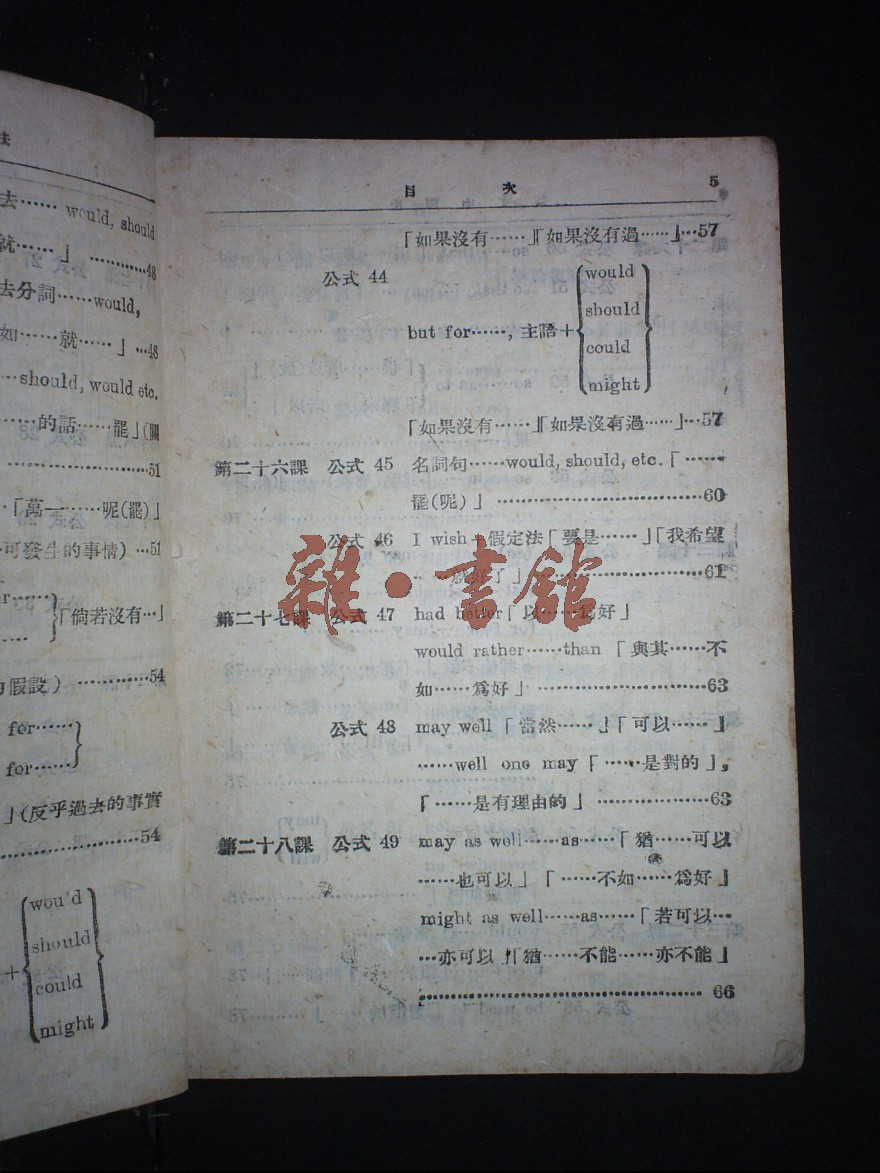 法
去…… would, should
就……」…………48
去分詞……would,
如……就……」…48
…should, would etc.
……的話……罷」(關
…………………51
「萬一……呢(罷)」
可發生的事情)…51
「倘若沒有…」
假設)…………54
for……
for……
」(反乎過去的事實
…………………54
would
should
+
could
might
目 次 5
「如果沒有……」「如果沒有過……」…57
公式 44
would
should
but for……, 主語+
could
might
「如果沒有……」「如果沒有過……」…57
第二十六課 公式 45 名詞句……would, should, etc.「……
罷(呢)」…………………………60
公式 46 I wish+假定法「要是……」「我希望
……就好了」…………………………61
第二十七課 公式 47 had better「以……爲好」
would rather……than「與其……不
如……爲好」…………………………63
公式 48 may well「當然……」「可以……」
……well one may「……是對的」,
「……是有理由的」…………………63
第二十八課 公式 49 may as well……as……「猶……可以
……也可以」「……不如……爲好」
might as well……as……「若可以…
…亦可以」「猶……不能……亦不能」
…………………………………… 66
雜·書館